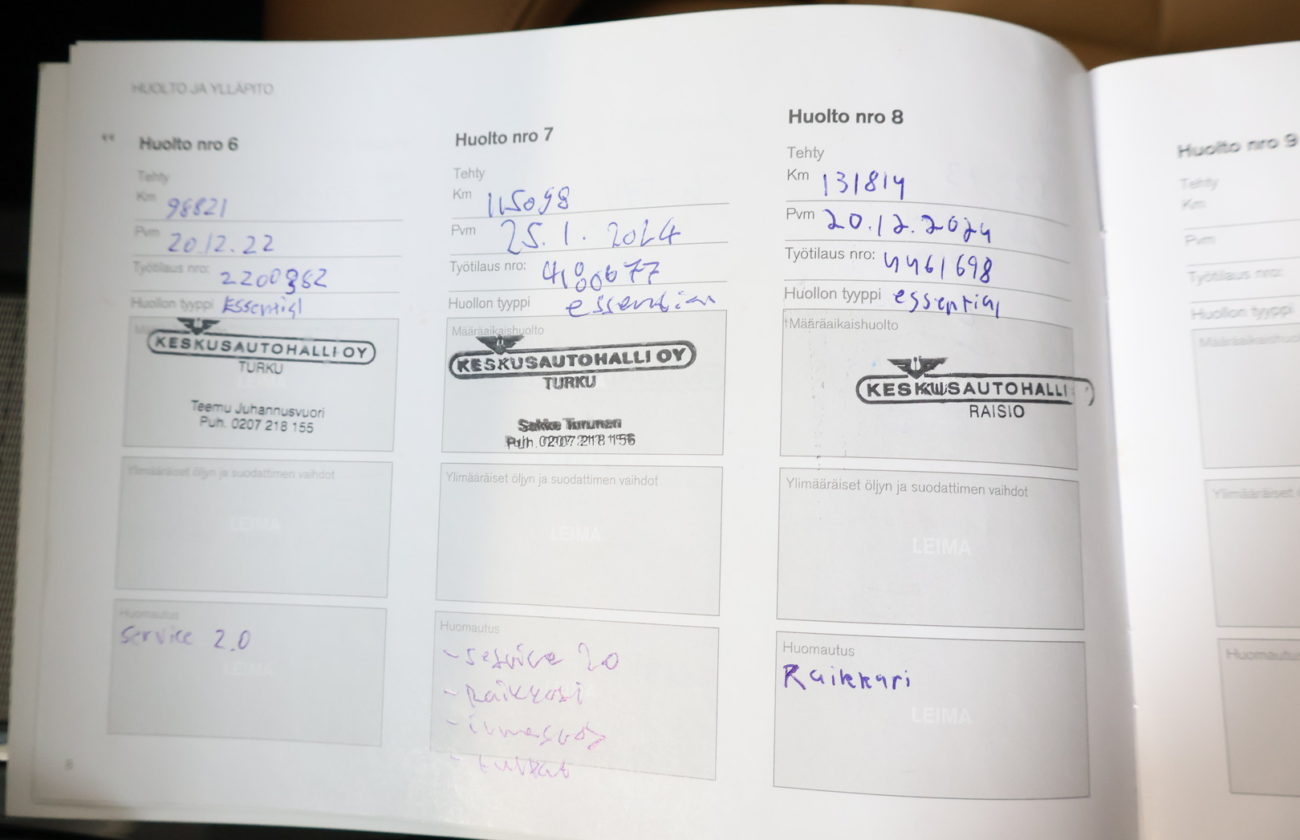 HUOLTO JA YLLÄPITO
Huolto nro 6
Tehty
Km 98821
Pvm 20.12.22
Työtilaus nro:
Huollon tyyppi Essential
KESKUSAUTOHALLI OY
TURKU
Teemu Juhannusvuori
Puh. 0207 218 155
Ylimääräiset öljyn ja suodattimen vaihdot
LEIMA
Huomautus
service 2.0
LEIMA
8
Huolto nro 7
Tehty
Km 115098
Pvm 25.1.2024
Työtilaus nro: 4100677
Huollon tyyppi essential
Määräaikaishuolto
KESKUSAUTOHALLI OY
TURKU
Sakke Turunen
Puh. 0207 218 156
Ylimääräiset öljyn ja suodattimen vaihdot
LEIMA
Huomautus
- service 2.0
- Raikkari
- ilmasuod
Huolto nro 8
Tehty
Km 131814
Pvm 20.12.2024
Työtilaus nro: 4461698
Huollon tyyppi essential
Määräaikaishuolto
KESKUSAUTOHALLI
RAISIO
Ylimääräiset öljyn ja suodattimen vaihdot
LEIMA
Huomautus
Raikkari
LEIMA
Huolto nro 9
Tehty
Km
Pvm
Työtilaus nro:
Huollon tyyppi
Ylimääräiset
Huomautus